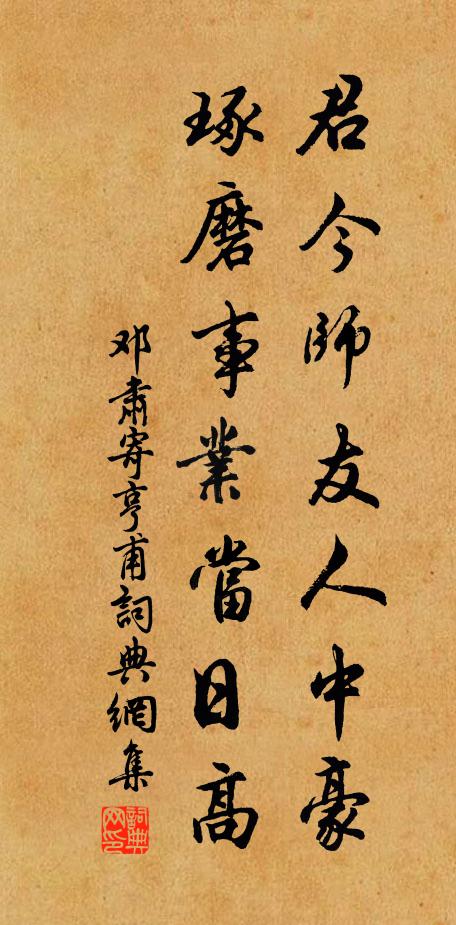 君今師友人中豪
琢磨事業當日高
邓肅寄亨甫詞典網集
詞典网印